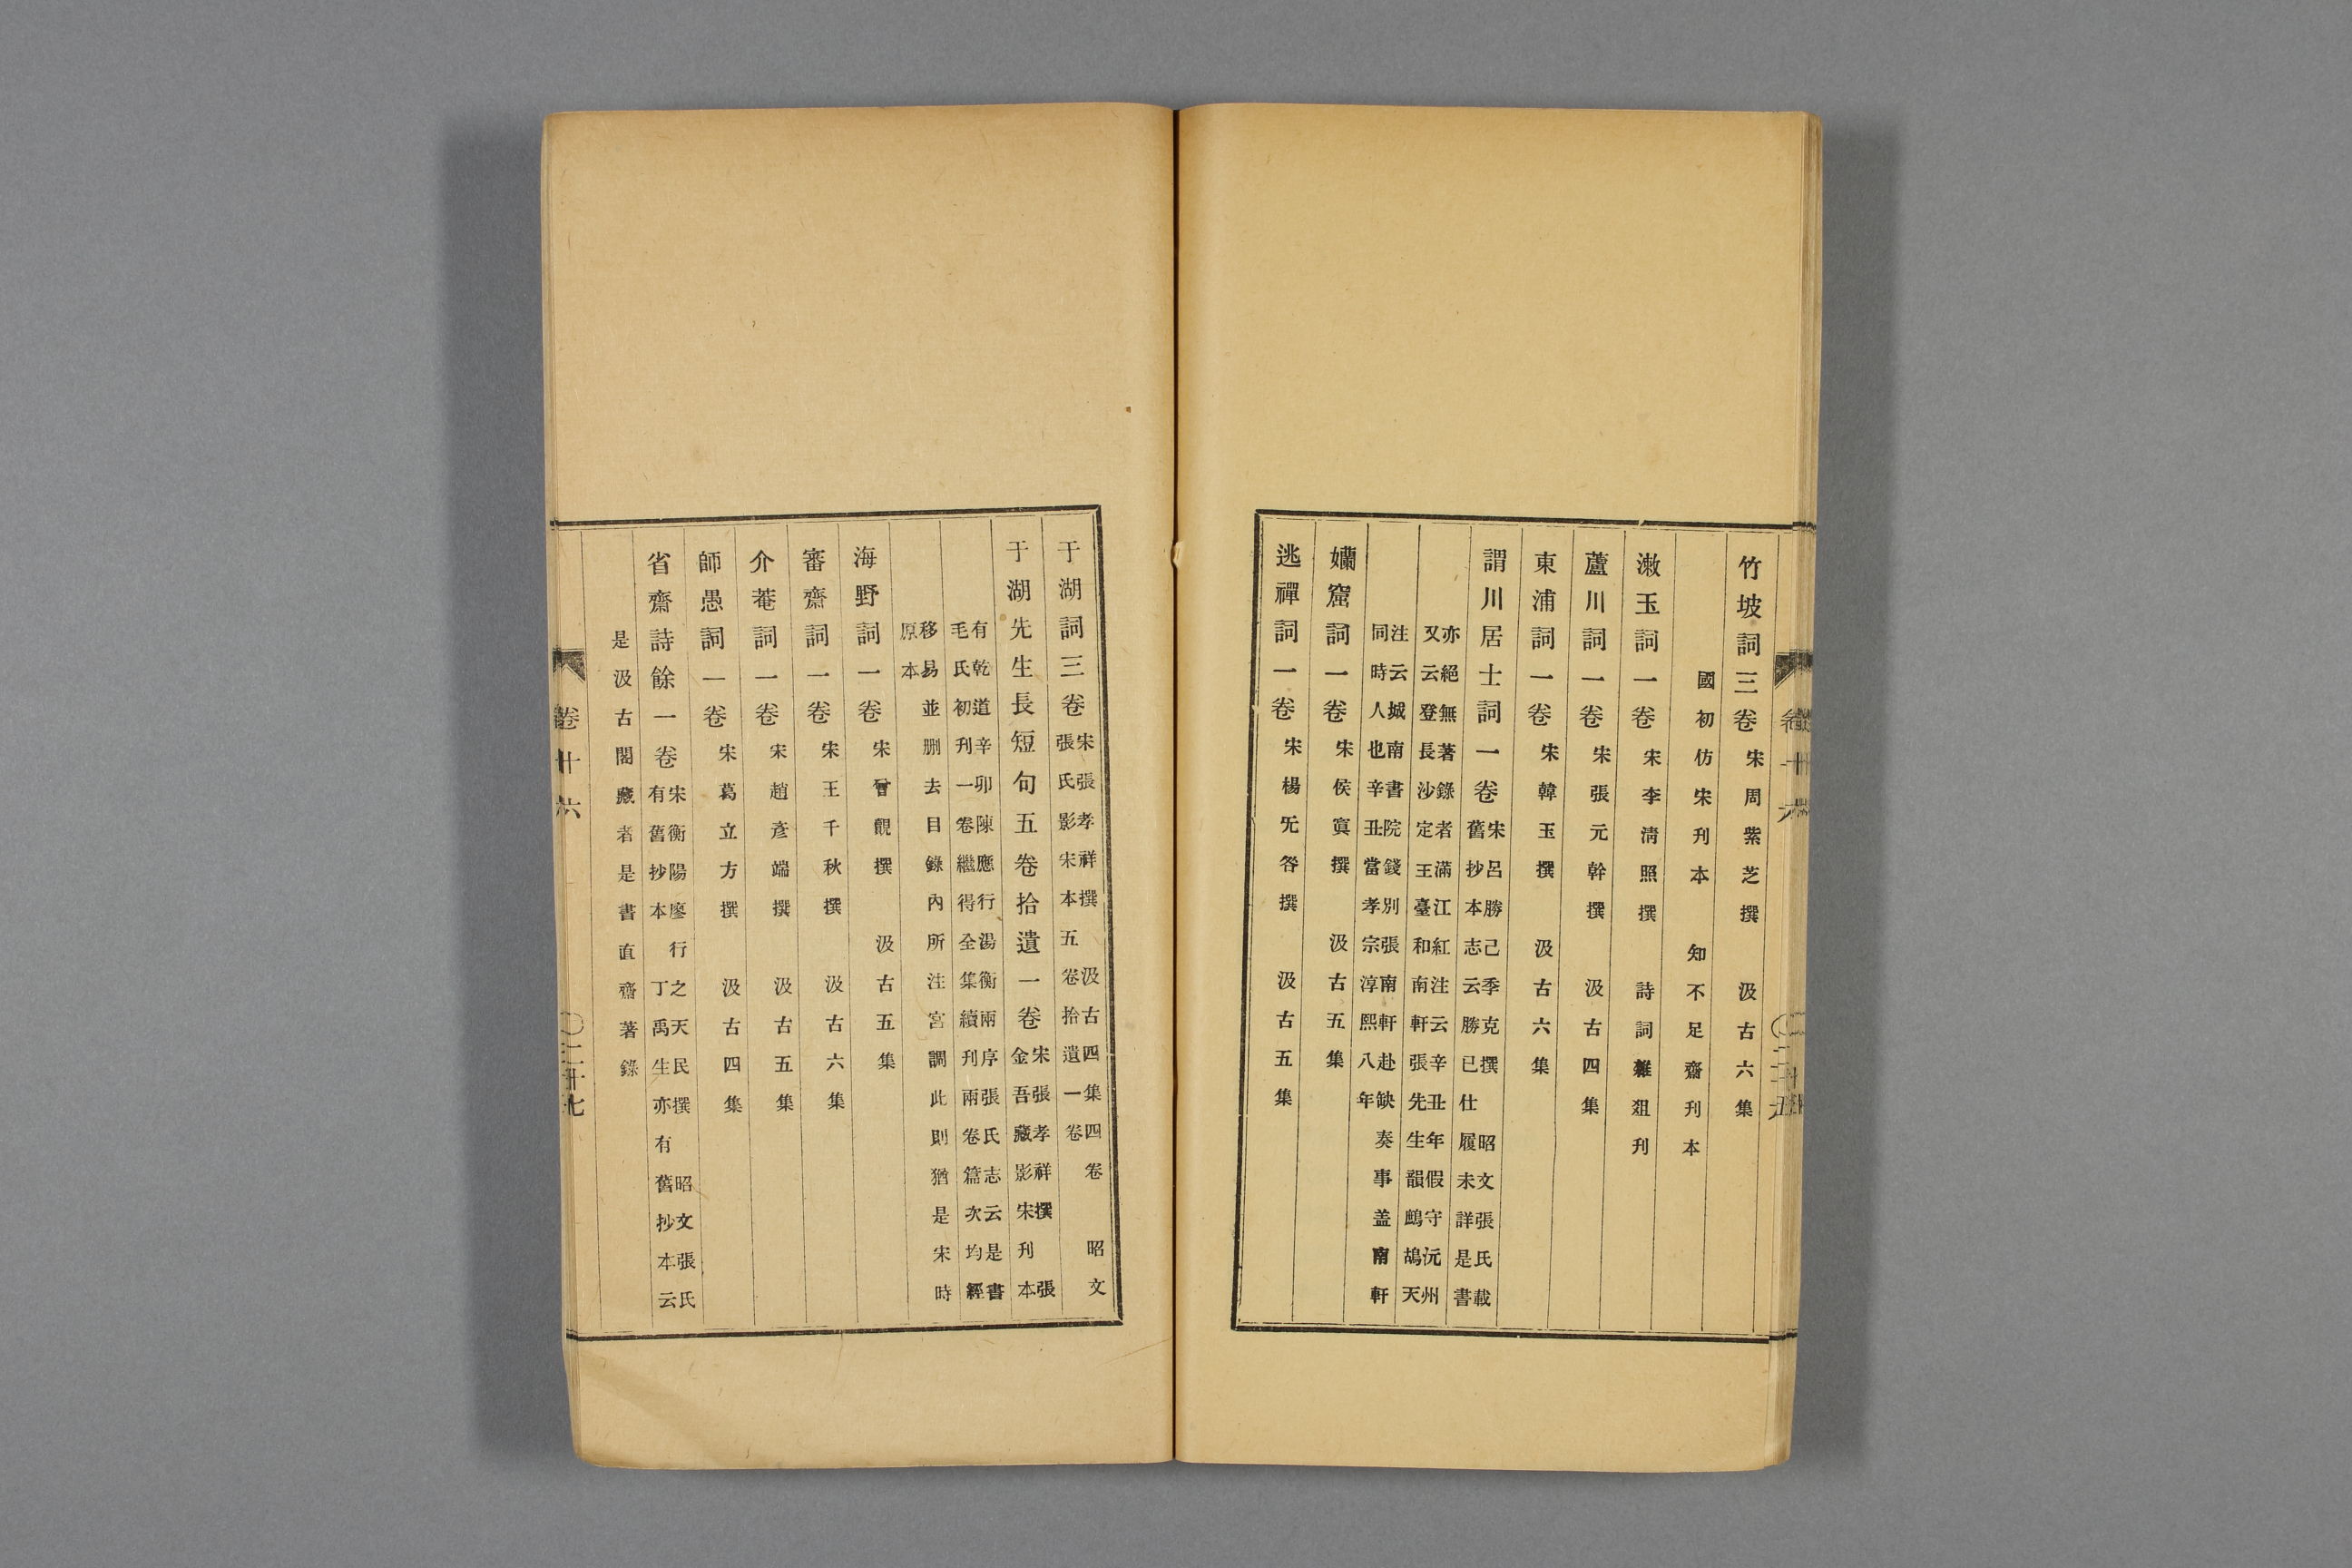 竹坡詞三卷 宋周紫芝撰 汲古六集
國初仿宋刊本 知不足齋刊本
漱玉詞一卷 宋李清照撰 詩詞雜俎刊
蘆川詞一卷 宋張元幹撰 汲古四集
東浦詞一卷 宋韓玉撰 汲古六集
謂川居士詞一卷 宋呂勝己季克撰 昭文張氏載
舊抄本志云勝已仕履未詳是書
亦絕無著錄者滿江紅注云辛丑年假守沅州
又云登長沙定王臺和南軒張先生韻鷓鴣天
注云城南書院錢別張南軒赴缺奏事盖南軒
同時人也辛丑當孝宗淳熙八年
孏窟詞一卷 宋侯寘撰 汲古五集
逃禪詞一卷 宋楊旡咎撰 汲古五集
卷十六
于湖詞三卷 宋張孝祥撰 汲古四集四卷 昭文
張氏影宋本五卷拾遺一卷
于湖先生長短句五卷拾遺一卷 宋張孝祥撰 張
金吾藏影宋刊本
有乾道辛卯陳應行湯衡兩序張氏志云是書
毛氏初刊一卷繼得全集續刊兩卷篇次均經
移易並刪去目錄內所注宮調此則猶是宋時
原本
海野詞一卷 宋曾覿撰 汲古五集
審齋詞一卷 宋王千秋撰 汲古六集
介菴詞一卷 宋趙彥端撰 汲古五集
師愚詞一卷 宋葛立方撰 汲古四集
省齋詩餘一卷 宋衡陽廖行之天民撰 昭文張氏
有舊抄本 丁禹生亦有舊抄本云
是汲古閣藏者是書直齋著錄
卷十六
〇二十七